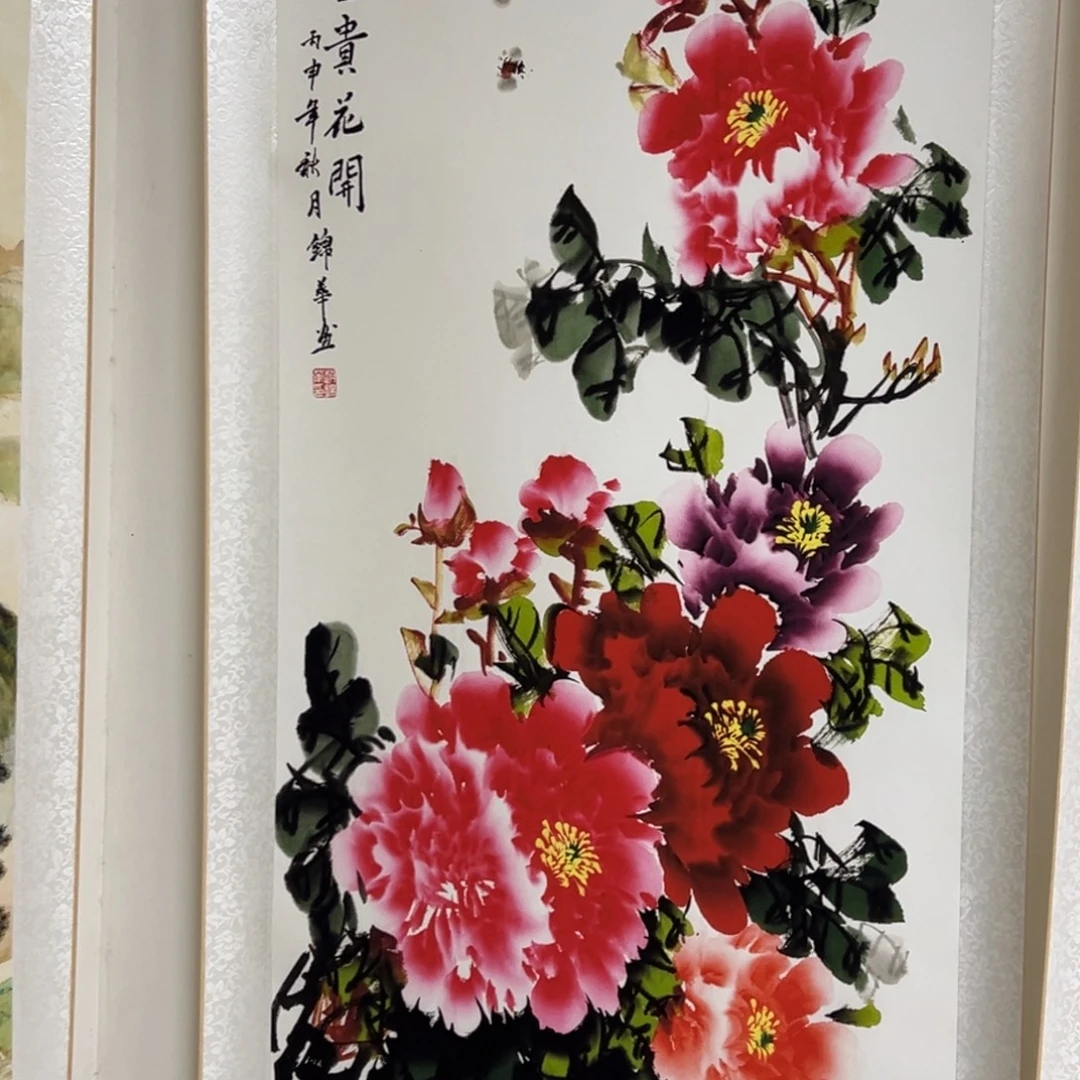 貴花開
丙申年秋月錦華画